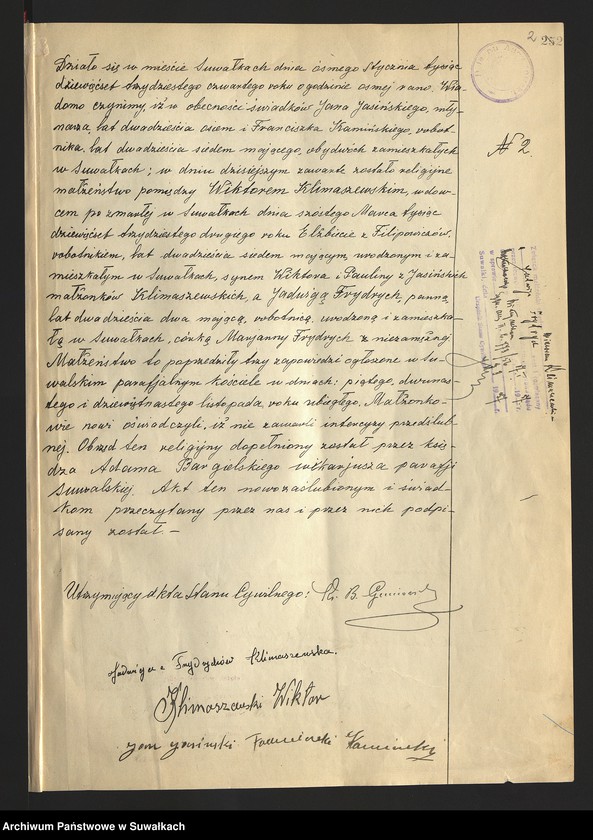 2 252
Działo się w mieście Suwałkach dnia ósmego Stycznia tysiąc
dziewięćset trzydziestego czwartego roku o godzinie ósmej rano. Wia-
domo czynimy, iż w obecności świadków Jana Jasińskiego, mły-
narza, lat dwadzieścia osiem i Franciszka Kamińskiego, robot-
nika, lat dwadzieścia siedem mającego, obydwóch zamieszkałych
w Suwałkach; w dniu dzisiejszym zawarte zostało religijne
małżeństwo pomiędzy Wiktorem Klimaszewskim, wdow-
cem po zmarłej w Suwałkach dnia szóstego Marca tysiąc
dziewięćset trzydziestego drugiego roku Elżbiecie z Filipowiczów,
robotnikiem, lat dwadzieścia siedem mającym, urodzonym i za-
mieszkałym w Suwałkach, synem Wiktora i Pauliny z Jasińskich
małżonków Klimaszewskich, a Jadwigą Frydrych, panną,
lat dwadzieścia dwa mającą, robotnicą, urodzoną i zamieszka-
łą w Suwałkach, córką Marjanny Frydrych z niezamężnej
Małżeństwo to poprzedziły trzy zapowiedzi ogłoszone w su-
walskim parafjalnym kościele w dniach: piątego, dwunas-
tego i dziewiętnastego listopada, roku ubiegłego. Małżonko-
wie nowi oświadczyli, iż nie zawarli intercyzy przedślub-
nej. Obrzęd ten religijny dopełniony został przez księ-
dza Adama Bargielskiego wikarjusza parafji
Suwalskiej. Akt ten nowozaślubionym i świad-
kom przeczytany przez nas i przez nich podpi-
sany został. –
№ 2.
Utrzymujący Akta Stanu Cywilnego: Ks. B.
Jadwiga z Frydrychów Klimaszewska.
Klimaszewski Wiktor
Jan Jasiński Kamiński
Archiwum Państwowe w Suwałkach